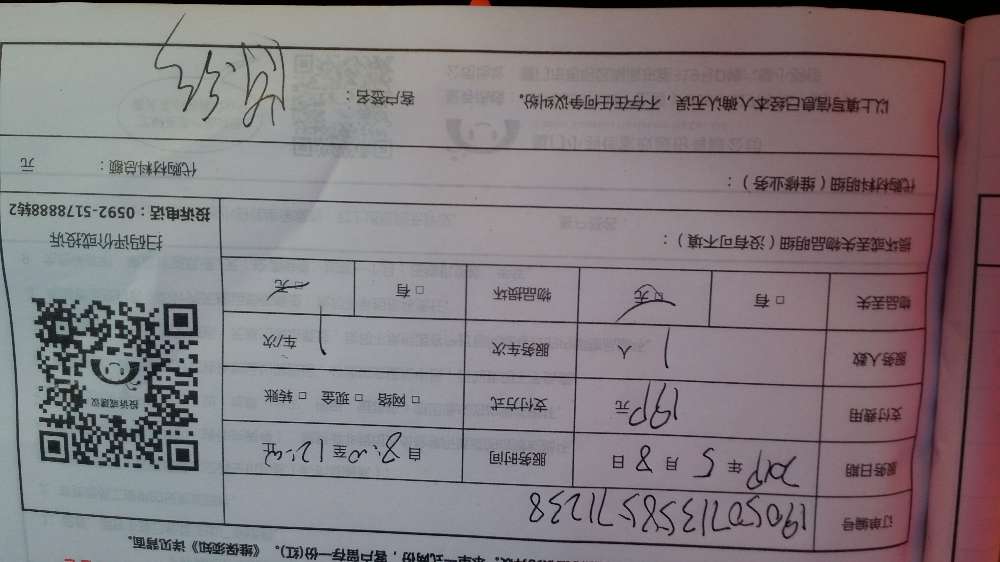 本单一式两份，客户留存一份(红)。《维保须知》详见背面。
订单编号 190507135857 1238
服务日期 2019 年 5 月 8 日 服务时间 自 8:00 至 12:00
支付费用 190 元 支付方式 □ 网络 □ 现金 □ 转账
服务人数 1 人 服务车次 1 车/次
物品丢失 □ 有 □ 无 物品损坏 □ 有 □ 无
损坏或丢失物品明细（没有可不填）：
扫码评价或投诉
投诉或建议
投诉电话：0592-5178888转2
代购材料明细（维修业务）：
代购材料总额： 元
以上填写信息已经本人确认无误，不存在任何争议纠纷。 客户签名：